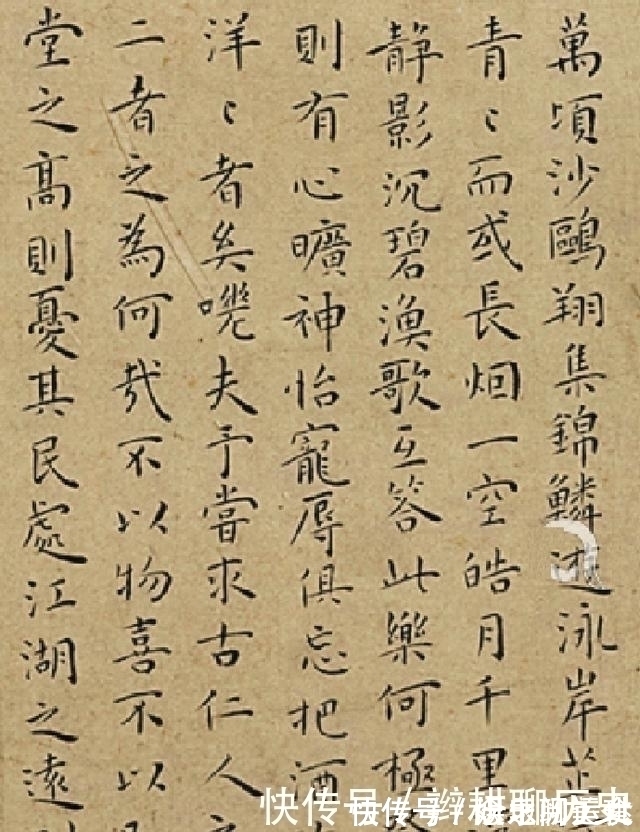 萬頃沙鷗翔集錦鱗逰泳岸芷
青〻而或長烟一空皓月千里
静影沉碧漁歌互答此樂何極
則有心曠神怡寵辱俱忘把酒
洋〻者矣嗟夫予嘗求古仁人
二者之為何哉不以物喜不以
堂之髙則憂其民處江湖之遠
快传号/辫耕聊历史
快传号/